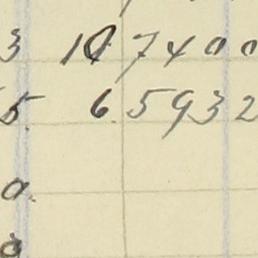 3 10 7400
5 6 5932
0.
0